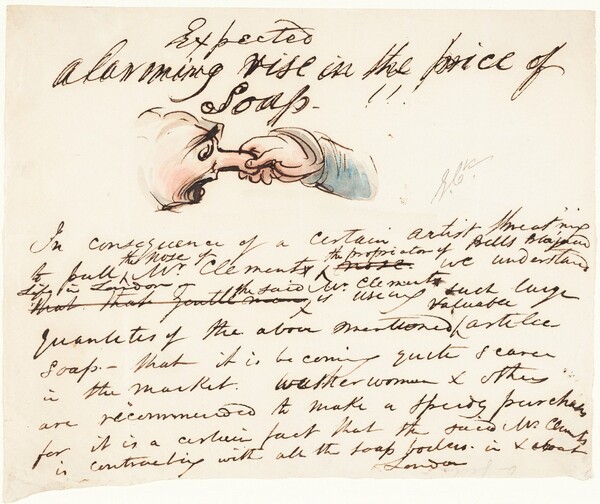 Expected
alarming rise in the price of
Soap - !!
In consequence of a certain artist threat'ning
to pull the nose of Mr. Clements, the proprietor of nose Bells
Life in London we understand
that that gentleman the said Mr. Clements is using such large
quantities of the above mentioned valuable article
soap - that it is becoming quite scarce
in the market. Washerwomen & others
are recommended to make a speedy purchase
for it is a certain fact that the said Mr. Clements
is contracting with all the soap boilers in & about
London